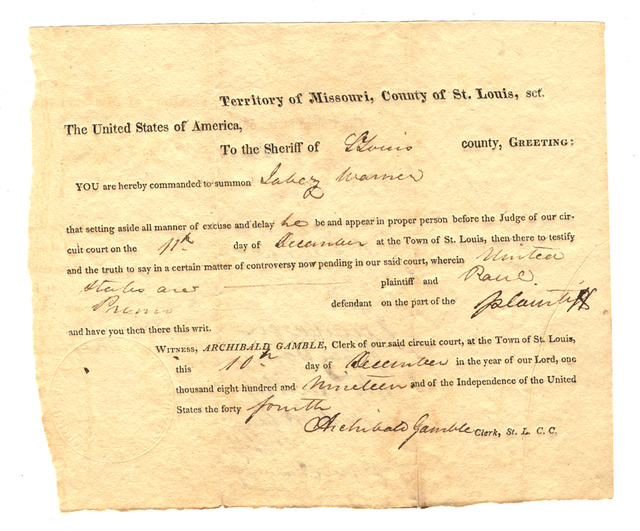 Territory of Missouri, County of St. Louis, sct.
The United States of America,
To the Sheriff of St Louis county, GREETING:
YOU are hereby commanded to summon Jabez Warner
that setting aside all manner of excuse and delay he be and appear in proper person before the Judge of our cir-
cuit court on the 11th day of December at the Town of St. Louis, then there to testify
and the truth to say in a certain matter of controversy now pending in our said court, wherein United
States are plaintiff and Paul
defendant on the part of the plaintiff
and have you then there this writ.
WITNESS, ARCHIBALD GAMBLE, Clerk of our said circuit court, at the Town of St. Louis,
this 10th day of December in the year of our Lord, one
thousand eight hundred and nineteen and of the Independence of the United
States the forty fourth
Archibald Gamble Clerk, St. L. C. C.